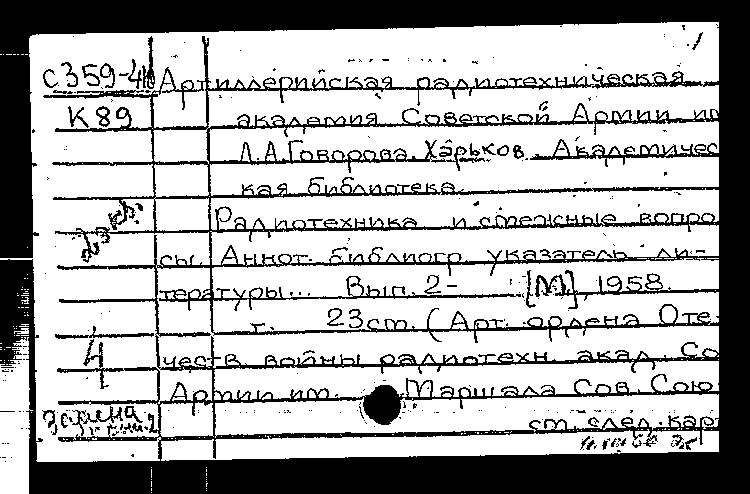 1
С359-4 Артиллерийская радиотехническая
К89 академия Советской Армии им
Л.А.Говорова. Харьков. Академичес
кая библиотека.
2 экз. Радиотехника и смежные вопро
сы. Аннот. библиогр. указатель ли-
тературы... Вып. 2- [М], 1958.
т. 23см. (Арт. ордена Оте-
4 честв войны радиотехн. акад. Со
Армии им. Маршала Сов. Сою
Замена
вып.2 см. след. карт